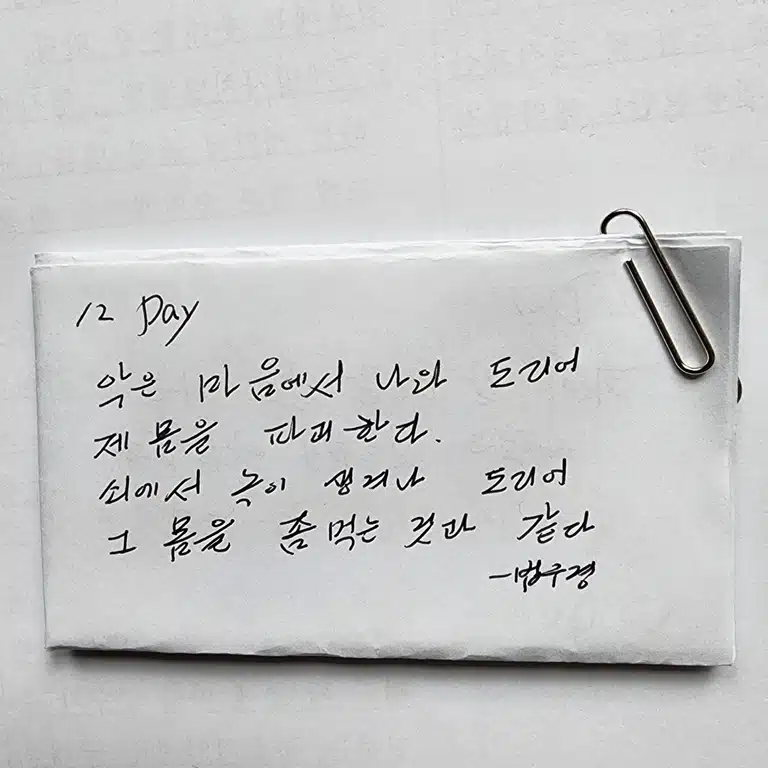 12 Day
악은 마음에서 나와 도리어
제 몸을 파괴한다.
쇠에서 녹이 생겨나 도리어
그 몸을 좀먹는 것과 같다
-법구경